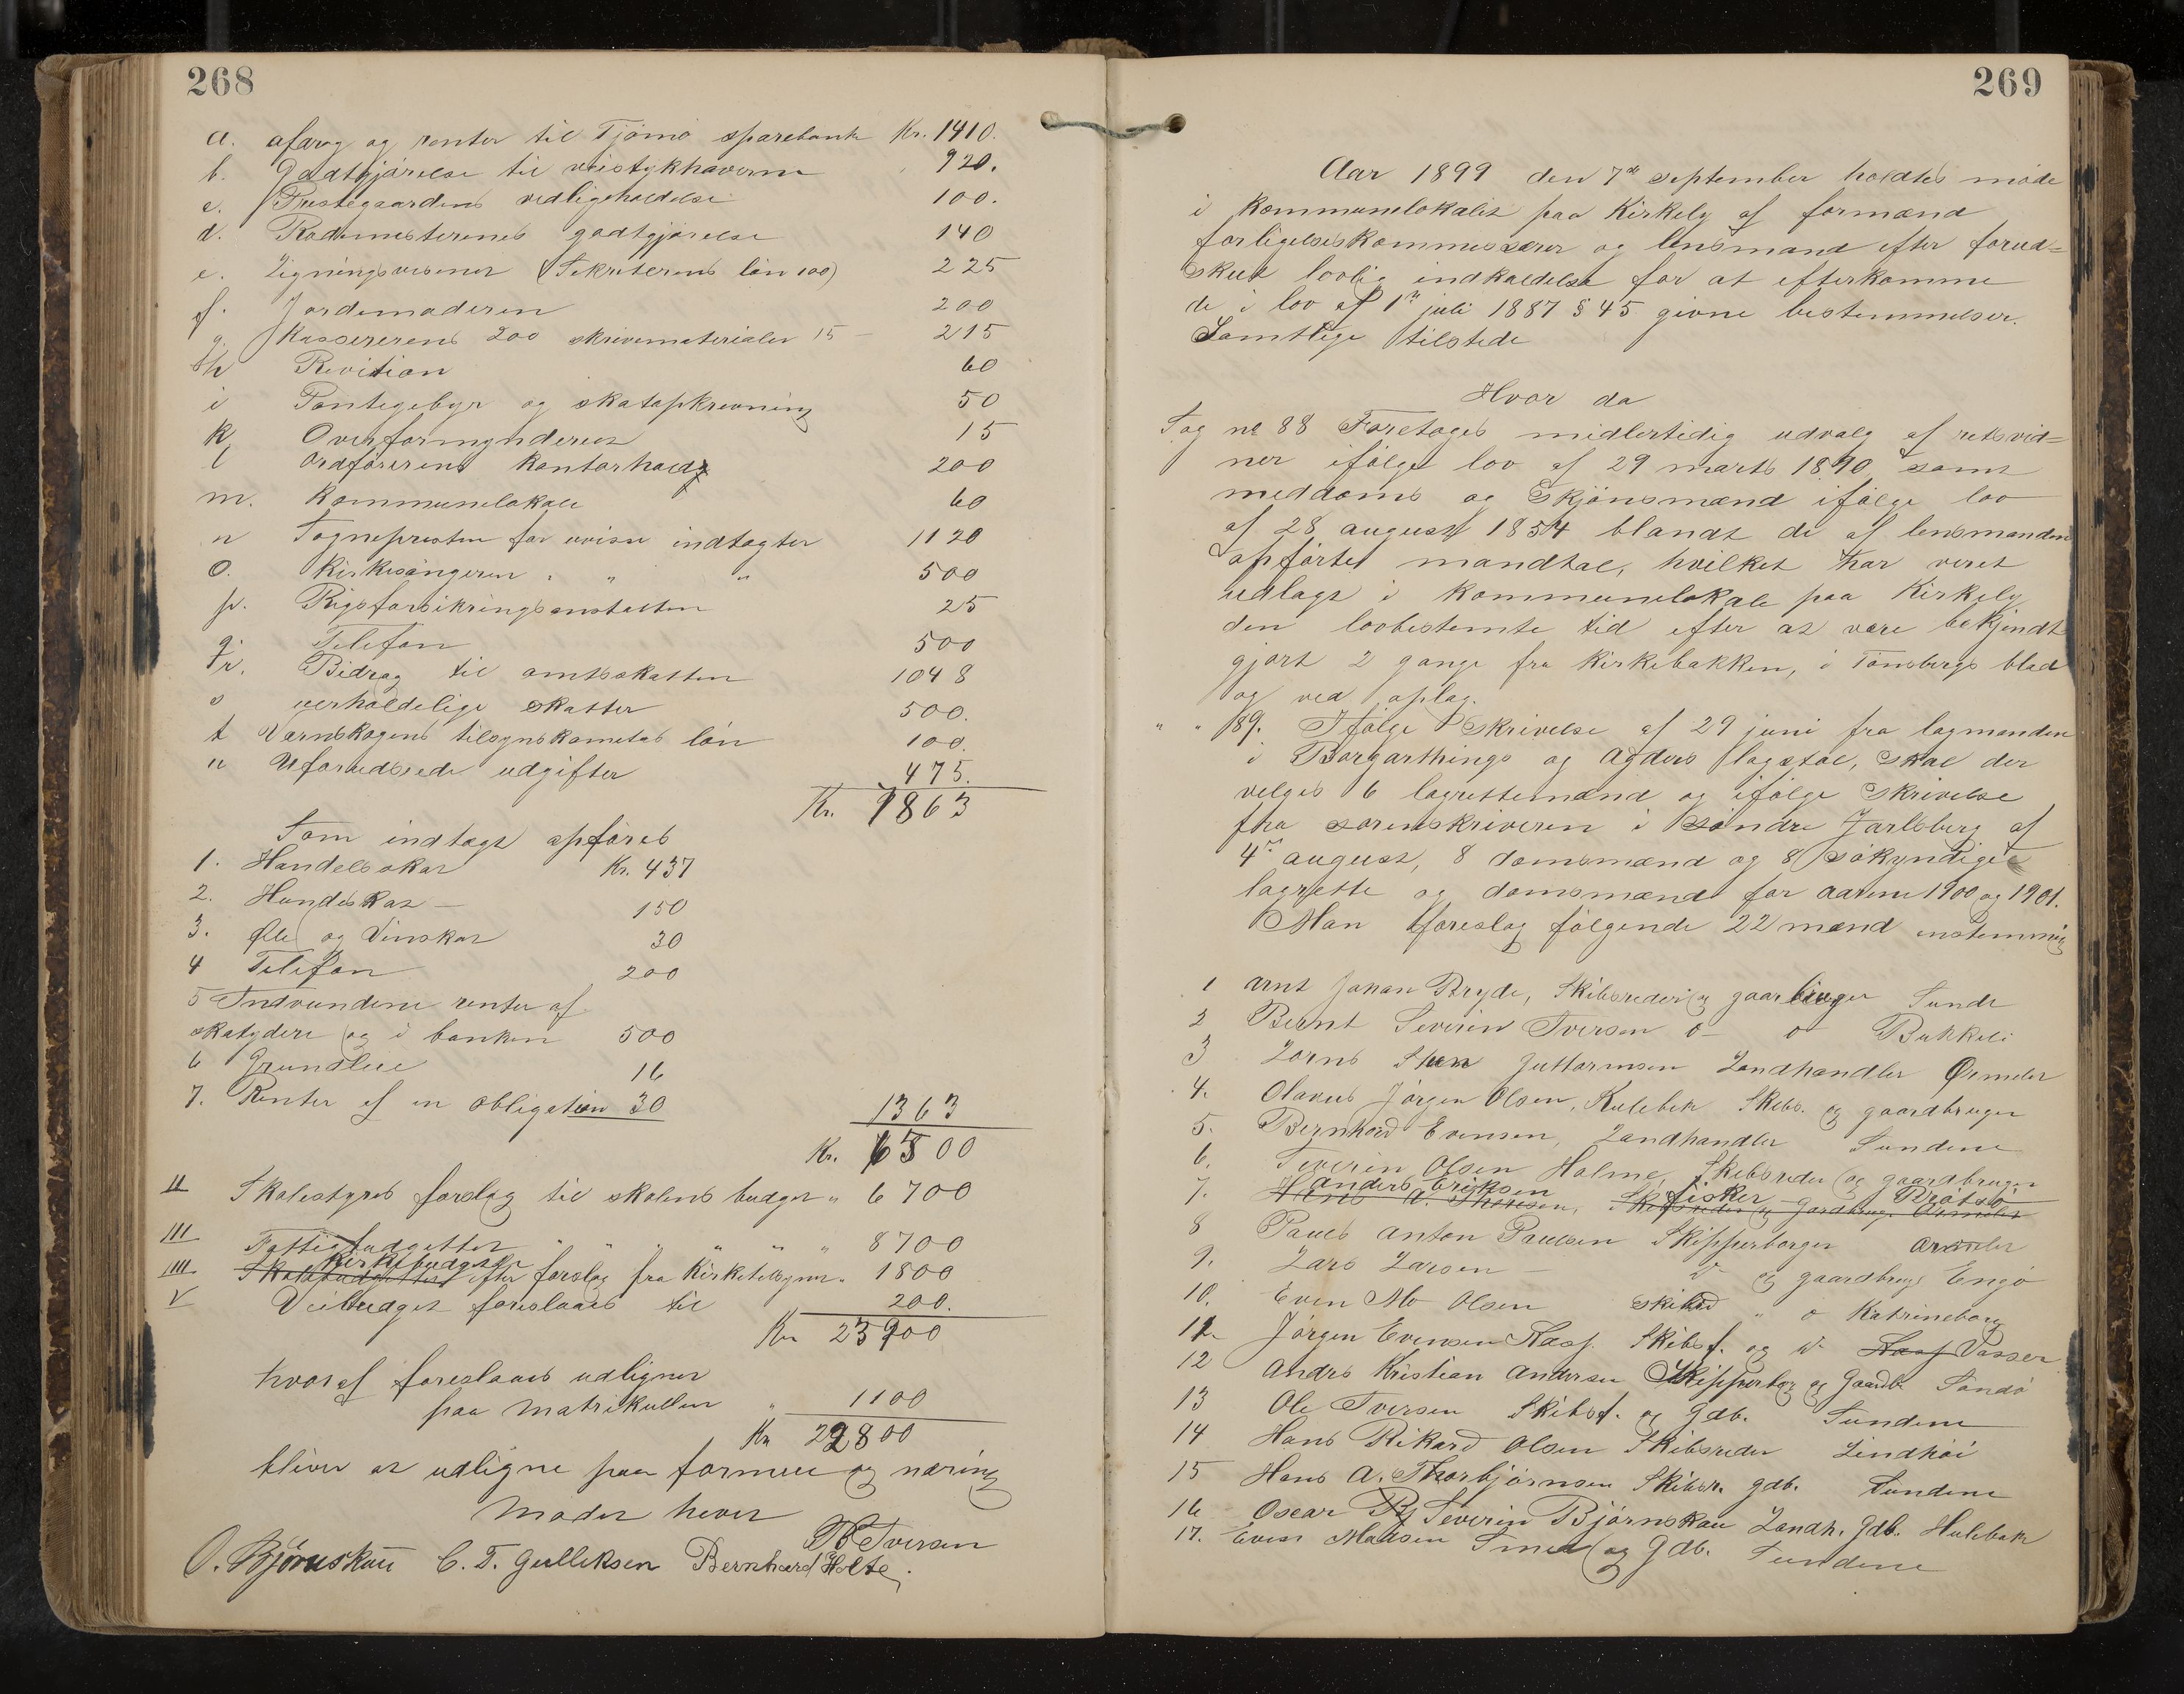 268
a. afdrag og renter til Tjömö sparebank Kr. 1410.
b. Godtgjörelse til veistykhaverne 920.
c. Prestegaardens vedligeholdelse 100.
d. Rodemesterenes godtgjörelse 140
e. Ligningsvesenet (Sekreterens lön 100) 225
f. Jordemoderen 200
g. Kassererens 200 skrivematerialer 15 — 215
h Revision 60
i Pantegebyr og skatopkrevning 50
k Overformynderiet 15
l Ordförerens kontorhold 200
m. Kommunelokale 60
n Sognepresten for uvisse indtægter 1120
o. Kirkesangeren " " " 500
p. Rigsforsikringsanstalten 25
q. Telefon 500
r. Bidrag til amtsskatten 1048
s uerholdelige skatter 500.
t Værnskogens tilsynskomites lön 100.
u Uforudseede udgifter 475.
Kr. 7863
Som indtægt opföres
1. Handelsskat Kr. 437
2. Hundeskat — 150
3. Øl og Vinskat 30
4 Telefon 200
5 Indvundene renter af
skatydere og i banken 500
6 Grundleie 16
7. Renter af en obligation 30
1363
Kr. 6500
II Skolestyrets forslag til skolens budget " 6700
III Fattigbudgettet " " " " " " 8700
Kirkebudgettet
IIII Skolebudgettet efter forslag fra Kirketilsynet " 1800
V Veibudget foreslaaes til 200.
Kr 23900
hvoraf foreslaaes udlignet
paa Matrikullen " 1100
Kr 22800
bliver at udligne paa formue og næring
Mödet hevet
B Iversen
O. Bjørnskau C. T. Gulliksen Bernhard Holte.
269
Aar 1899 den 7de September holdtes möde
i kommunelokalet paa Kirkely af formænd
forligelseskommissærer og lensmand efter forud=
skut lovlig indkaldelse for at efterkomme
de i lov af 1ste juli 1887 § 45 givne bestemmelser.
Samtlige tilstede
Hvor da
Sag no 88 Foretages midlertidig udvalg af retsvid=
ner ifölge lov af 29 marts 1890 samt
meddoms og Skjönsmænd ifölge lov
af 28 august 1854 blandt de af lensmanden
opförte mandtal, hvilket har veret
udlagt i kommunelokale paa Kirkely
den lovbestemte tid efter at være bekjendt
gjort 2 gange fra Kirkebakken, i Tönsbergs blad
og ved oplag.
" " 89. Ifölge Skrivelse af 29 juni fra lagmanden
i Borgarthings og Agders lagstol, skal der
velges 6 lagrettemænd og ifölge Skrivelse
fra sorenskriveren i Söndre Jarlsberg af
4de august, 8 domsmænd og 8 sökyndige
lagrette og domsmænd for aarene 1900 og 1901.
Man foreslog fölgende 22 mænd enstemmig
1 Arnt Johan Bryde, Skibsreder og gaarbruger Sunde
2 Bernt Severin Iversen o — o Bukkeli
3 Lorns Sten Guttormsen Landhandler Ormelet
4. Olavus Jörgen Olsen, Kulebek Skibs. og gaardbruger
5. Bernhard Evensen, Landhandler Sundene
6. Severin Olsen Holme, Skibsreder og gaardbruger
Anders Eriksen fisker Brötsö
7. Hans A. Thoresen, Skibsreder og Gardbrug. Ormelet
8 Pauls Anton Paulsen Skipperborger Ormelet
9. Lars Larsen — do og gaardbrug Engö
10. Even Mo Olsen Skibsd " o Katrineborg
11. Jörgen Evensen Kass. Skibsf. og do Haaf Vasser
12 Andrs Kristian Andersen Skipperbor og Gaardb Sandö
13 Ole Iversen Skibsf. og Gdb. Sundene
14 Hans Rikard Olsen Skibsreder Lindhöi
15 Hans A. Thorbjörnsen Skibsr. gdb. Sundene
16 Oscar Bj Severin Björnskau Landh. Gdb. Hulebak
17. Even Madsen Smed og Gdb. Sundene